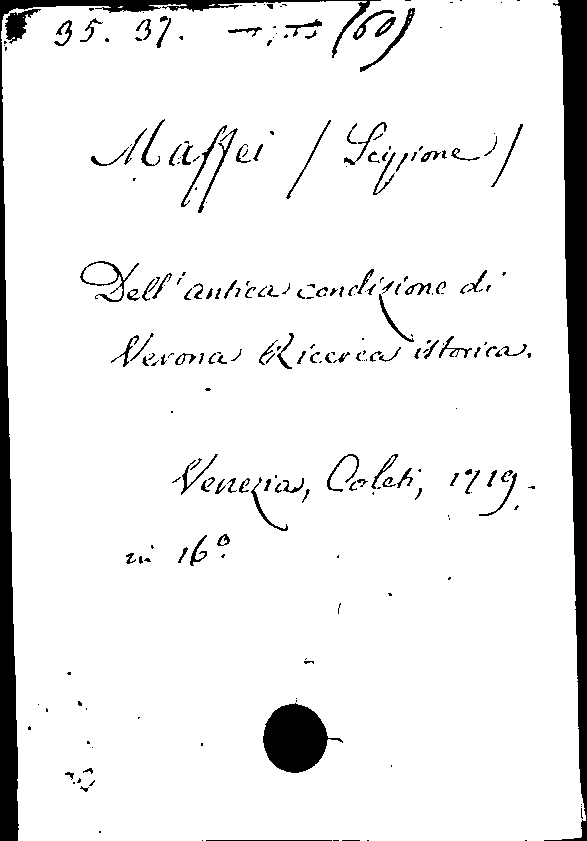 35. 37. (60)
Maffei / Scipione /
Dell'antica condizione di
Verona Ricerca istorica.
Venezia, Coleti, 1719.
in 16º.